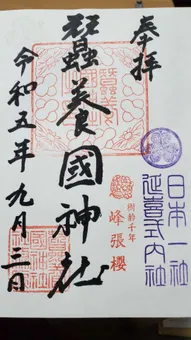 奉拝
日本一社
延喜式内社
樹齢千年
峰張桜
蠶養國神社
令和五年九月三日